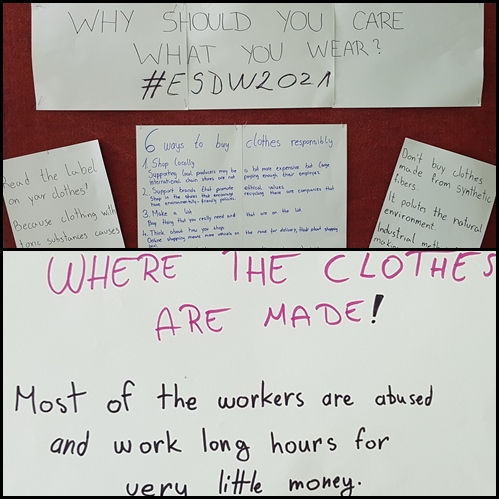 WHY SHOULD YOU CARE
WHAT YOU WEAR?
#ESDW2021
Read the label
on your clothes!
Because clothing with
toxic substances causes
6 ways to buy clothes responsibly
1. Shop locally
Supporting local producers may be a bit more expensive but large
international chain stores are not paying enough their employees.
2. Support brands that promote ethical values
Shop in the stores that encourage recycling, there are companies that
have environmentally-friendly policies.
3. Make a list
Buy thing that you really need and that are on the list.
4. Think about how you shop
Online shopping means more vehicles on the need for delivery, think about shopping
Don't buy clothes
made from synthetic
fibers.
It polutes the natural
environment.
Industrial
WHERE THE CLOTHES
ARE MADE!
Most of the workers are abused
and work long hours for
very little money.